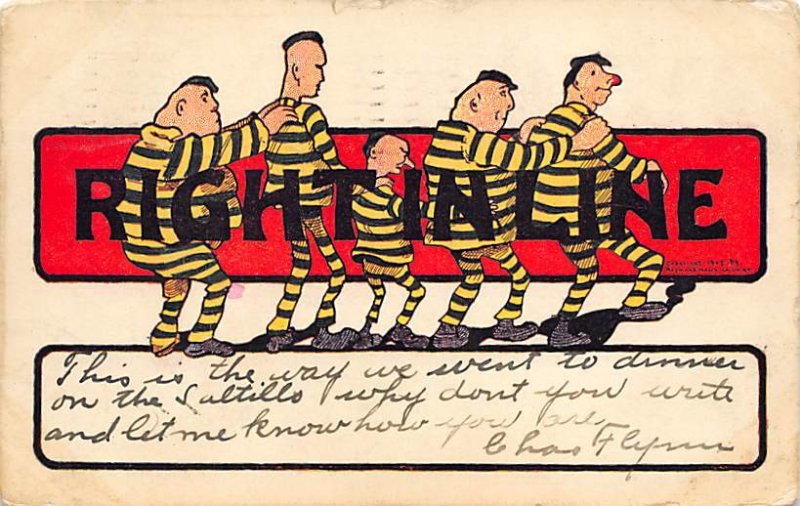 RIGHT IN LINE
COPYRIGHT 1905 BY
This is the way we went to dinner
on the Saltillo why dont you write
and let me know how you are
Chas Flynn